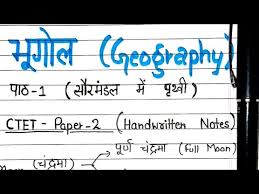 भूगोल (Geography)
पाठ-1 (सौरमंडल में पृथ्वी)
CTET - Paper-2 (Handwritten Notes)
पूर्ण चंद्रमा (Full Moon)
Moon (चंद्रमा)